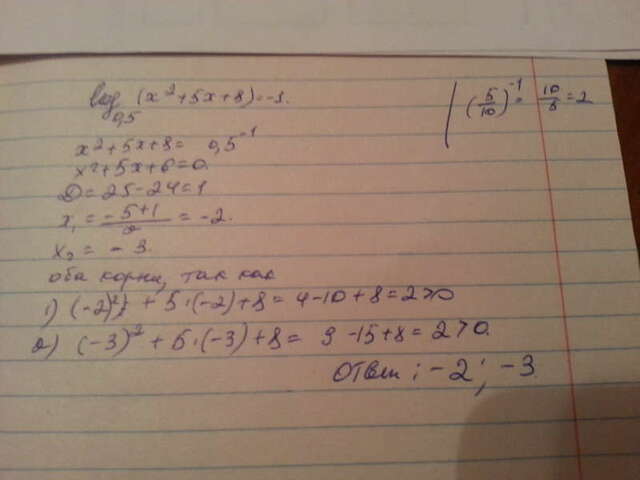 log₀,₅ (x²+5x+8)=-1.
(5/10)⁻¹ = 10/5 = 2
x²+5x+8= 0,5⁻¹
x²+5x+6=0.
D=25-24=1
x₁ = (-5+1)/2 = -2.
x₂ = -3.
оба корни, так как
1) (-2)² + 5·(-2)+8= 4-10+8=2>0
2) (-3)² + 5·(-3)+8= 9-15+8=2>0.
Ответ: -2; -3.